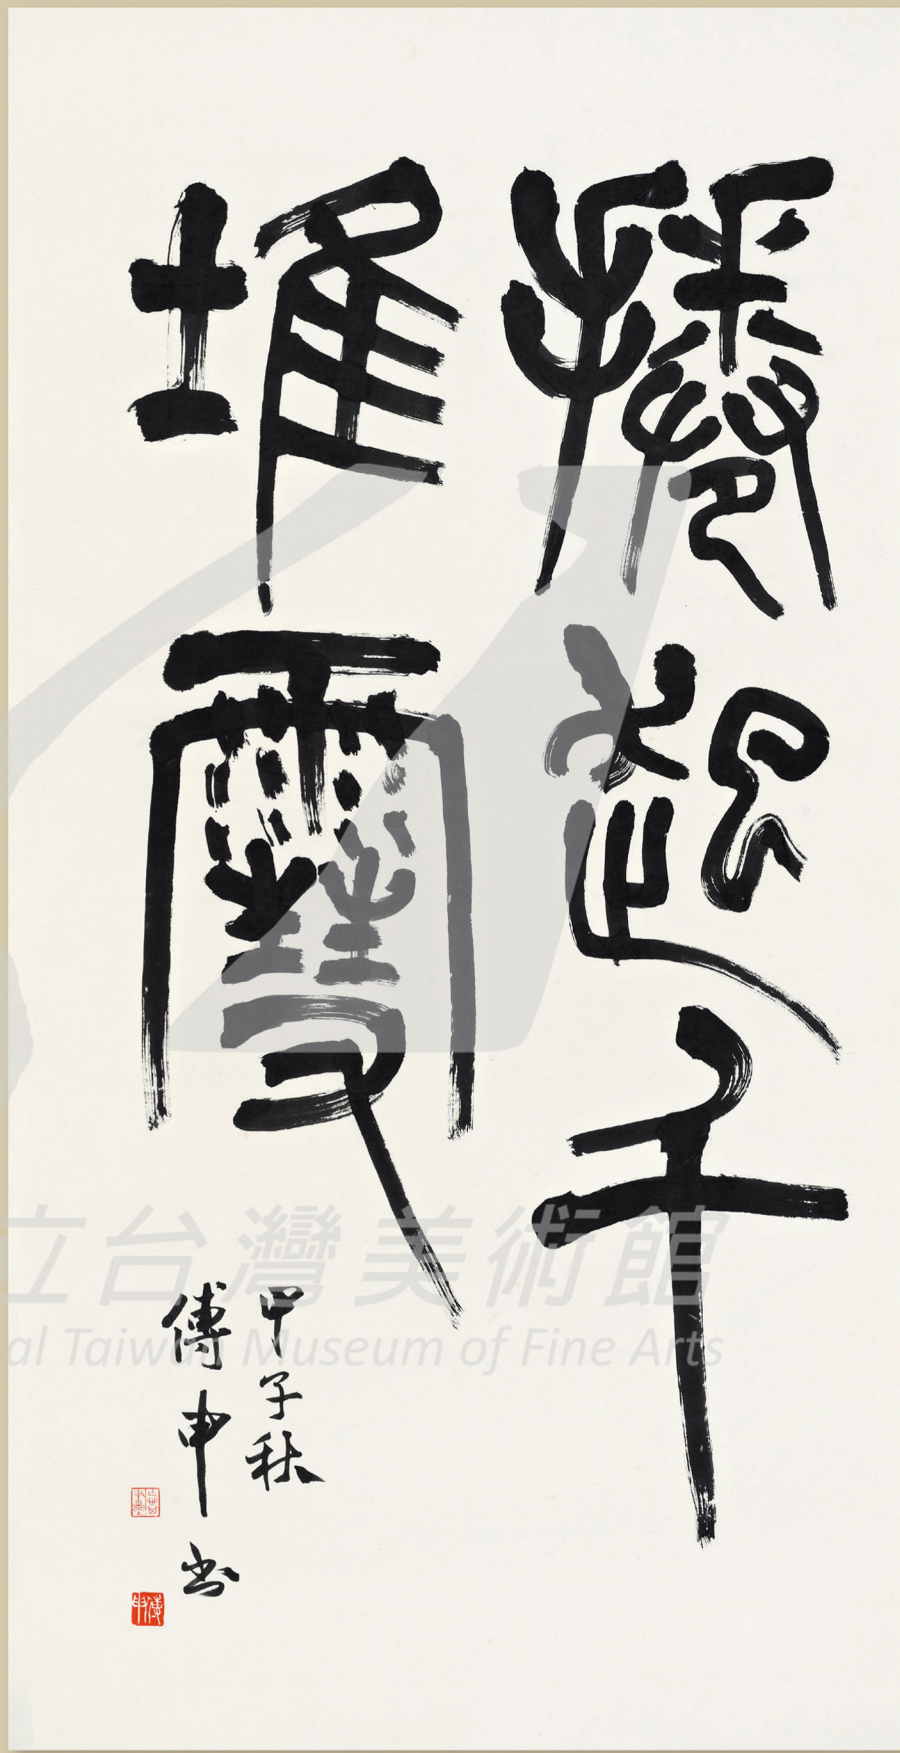 捲起千
堆雪
甲子秋
傅申書
傅申
立台灣美術館
al Taiwan Museum of Fine Arts